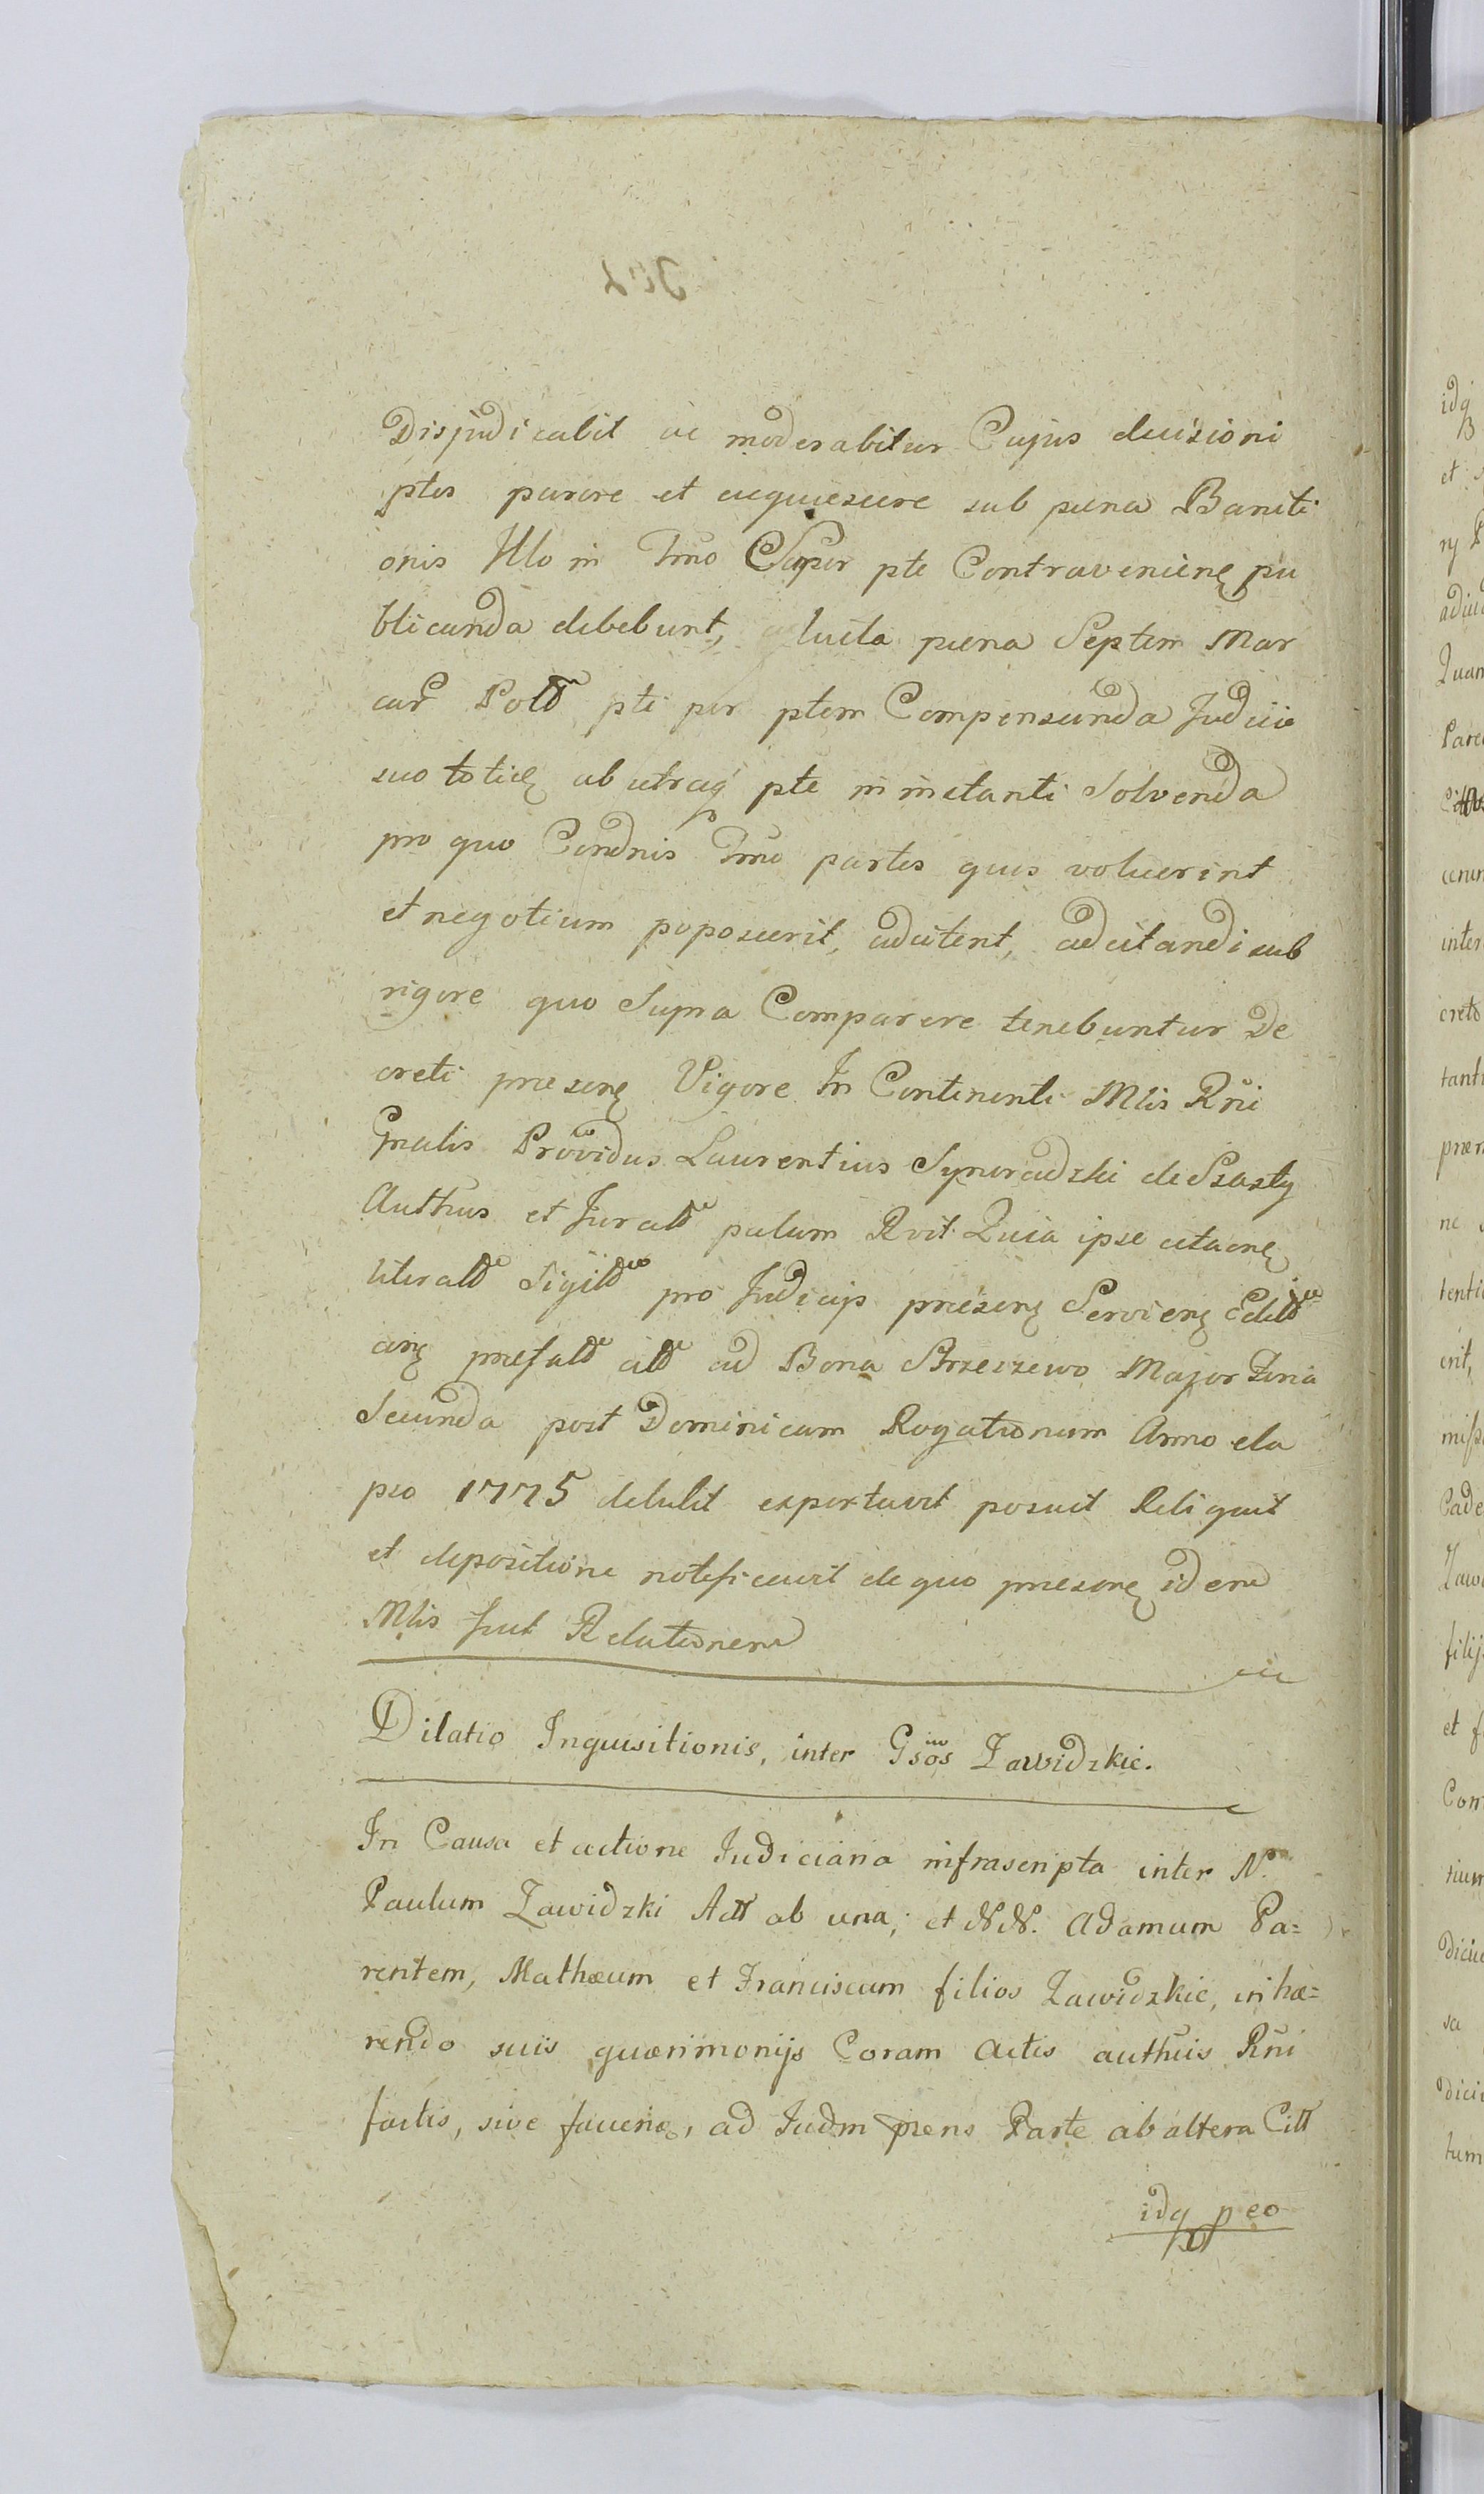 Disjudicabit ac moderabitur Cujus decisioni
ptes parere et acquiescere sub paena Baniti
onis Illo in Tmo Super pte Contravenieñ pu
blicanda debebunt, luita paena Septem Mar
car Poltt pti per ptem Compensanda Judicio
suo toties ab utraq pte in instanti Solvenda
pro quo Condnis Tmo partes quas voluerint
et negotium poposcerit, adcitent, adcitandi sub
rigore quo Supra Comparere tenebuntur De
creti praesen Vigore In Continenti Mlis Rni
Gnalis Providus Laurentius Synoradzki de Szasty
Authus et Juratt palam Rvit Quia ipse citaone
literatt Sigiltt pro Judicijs praesen Servien Editt
praefatt citt ad Bona Brzeszewo Major Feria
Secunda post Dominicam Rogationum Anno ela
pso 1775 detulit exportavit posuit Reliquit
et depositione notificavit de quo praesen idem
Mlis fecit Relationem
Dilatio Inquisitionis, inter Gsos Zawidzkie.
In Causa et actione Judiciaria infrascripta inter N.
Paulum Zawidzki Actt ab una; et NN. Adamum Pa=
rentem, Mathæum et Franciscum filios Zawidzkie, inhæ=
rendo suis quærimonijs Coram Actis authuis Rni
factis, sive faciend, ad Judm præns Parte ab altera Citt
idq p eo